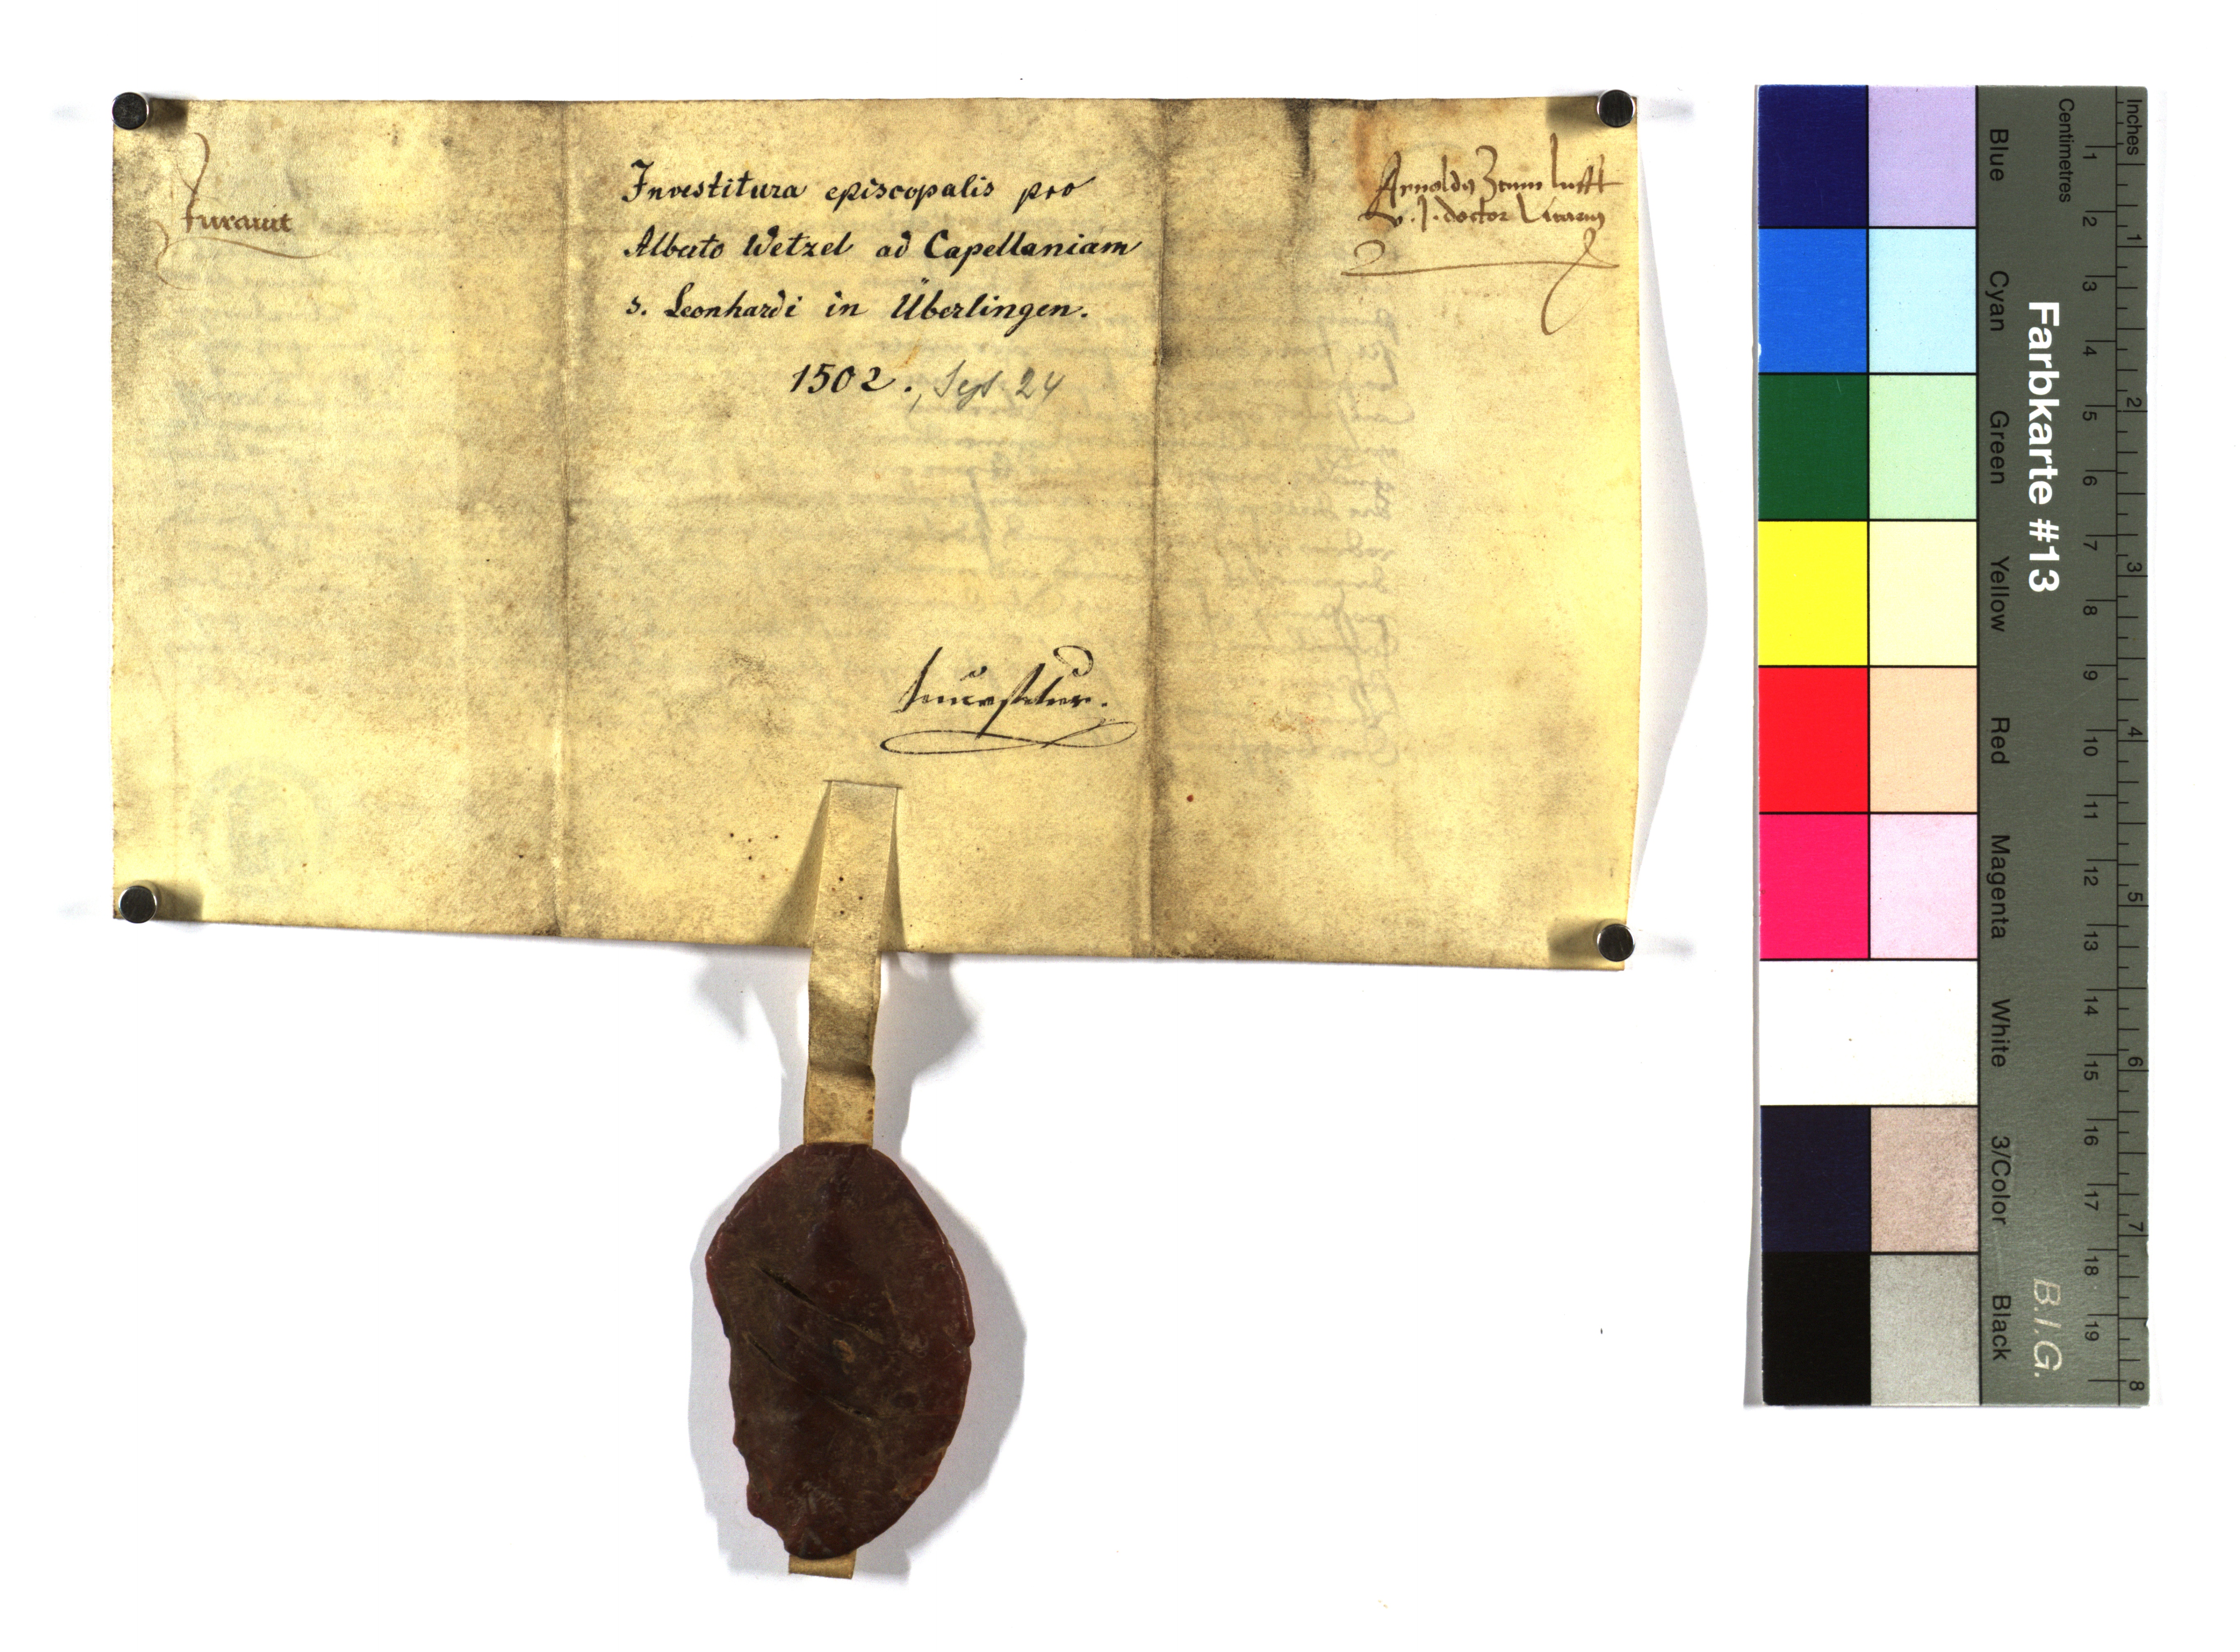 Jurauit
Investitura episcopalis pro
Alberto Wetzel ad Capellaniam
s. Leonhardi in Überlingen.
1502., Sept. 24
Arnoldus Zum Lufft
v. J. doctor Vicarius
Inuestitur.
Farbkarte #13
B.I.G.
Inches
1 2 3 4 5 6 7 8
Centimetres
1 2 3 4 5 6 7 8 9 10 11 12 13 14 15 16 17 18 19
Blue
Cyan
Green
Yellow
Red
Magenta
White
3/Color
Black